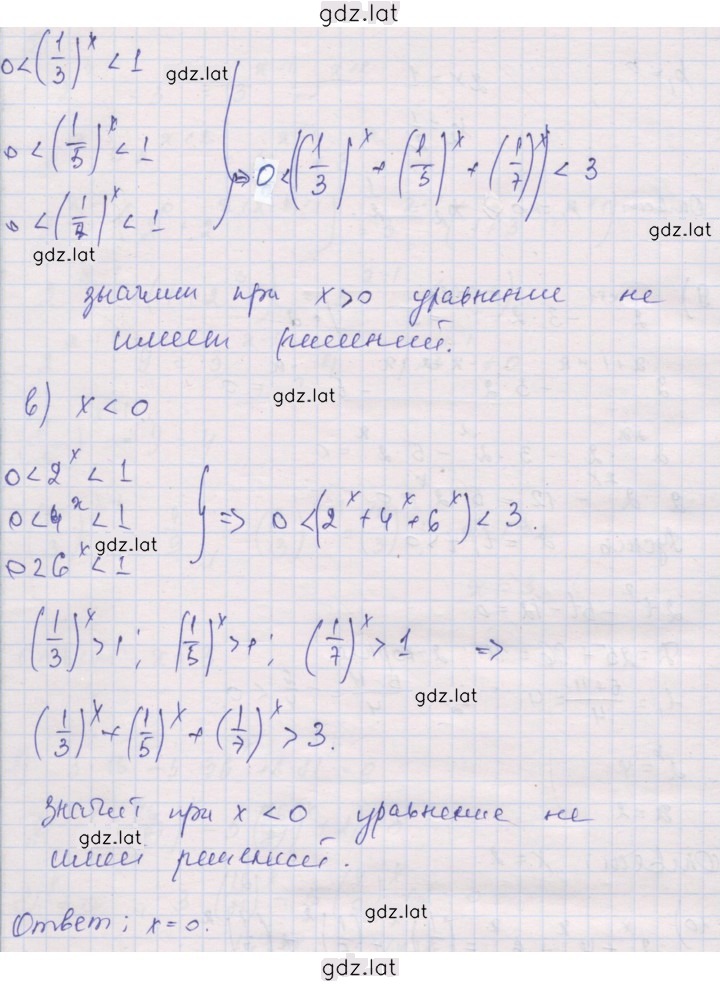 gdz.lat
0 < (1/3)^x < 1
gdz.lat
0 < (1/5)^x < 1
⇒ 0 < ((1/3)^x + (1/5)^x + (1/7)^x) < 3
0 < (1/7)^x < 1
gdz.lat
gdz.lat
значит при x > 0 уравнение не
имеет решений.
в) x < 0
gdz.lat
0 < 2^x < 1
0 < 4^x < 1
⇒ 0 < (2^x + 4^x + 6^x) < 3.
gdz.lat
0 < 6^x < 1
(1/3)^x > 1; (1/5)^x > 1; (1/7)^x > 1 ⇒
gdz.lat
(1/3)^x + (1/5)^x + (1/7)^x > 3.
значит при x < 0 уравнение не
gdz.lat
имеет решений.
gdz.lat
Ответ: x = 0.
gdz.lat